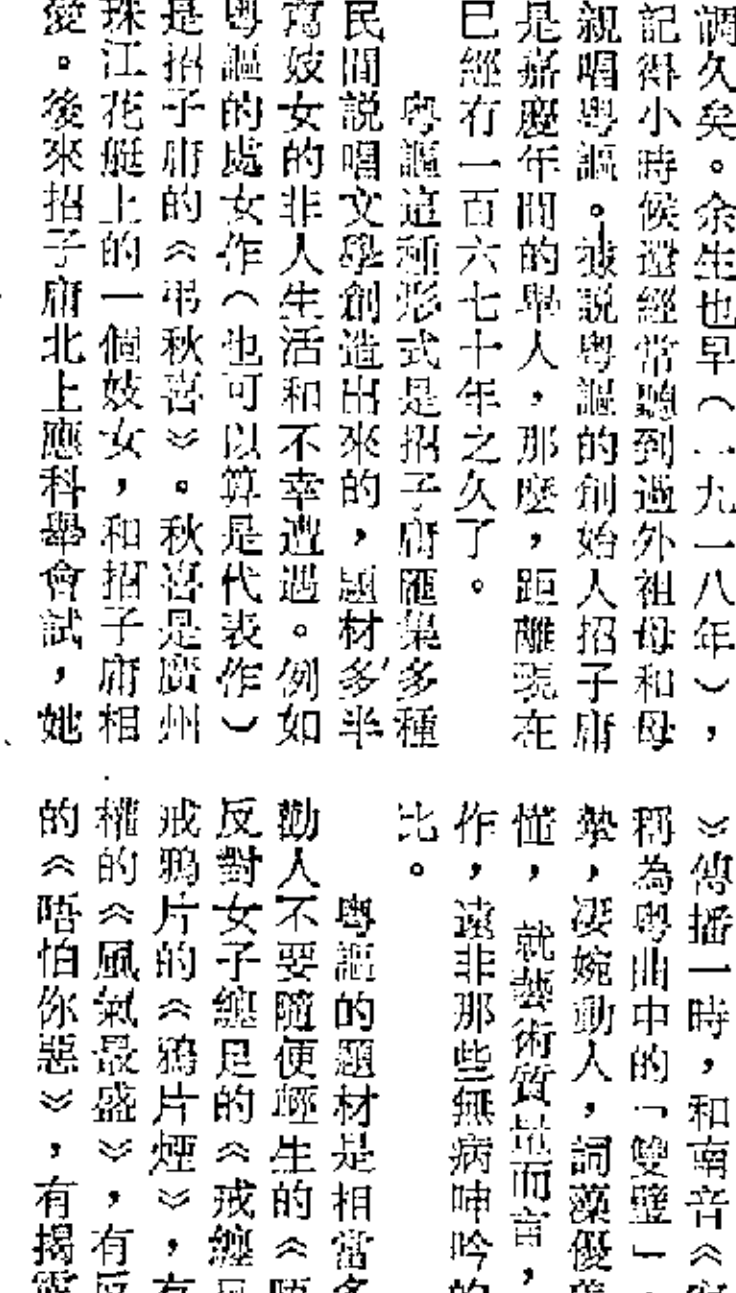 調久矣。余生也早（一九一八年），
記得小時候還經常聽到過外祖母和母
親唱粵謳。據說粵謳的創始人招子庸
是嘉慶年間的舉人，那麼，距離現在
已經有一百六七十年之久了。
粵謳這種形式是招子庸匯集多種
民間說唱文學創造出來的，題材多半
寫妓女的非人生活和不幸遭遇。例如
粵謳的處女作（也可以算是代表作）
是招子庸的《弔秋喜》。秋喜是廣州
珠江花艇上的一個妓女，和招子庸相
愛。後來招子庸北上應科舉會試，她
》傳播一時，和南音《客
稱為粵曲中的「雙璧」，
摯，淒婉動人，詞藻優
懂，就藝術質量而言，
作，遠非那些無病呻吟的
比。
粵謳的題材是相當多
勸人不要隨便輕生的《唔
反對女子纏足的《戒纏足
戒鴉片的《鴉片煙》，有
權的《風氣最盛》，有反
的《唔怕你惡》，有揭露